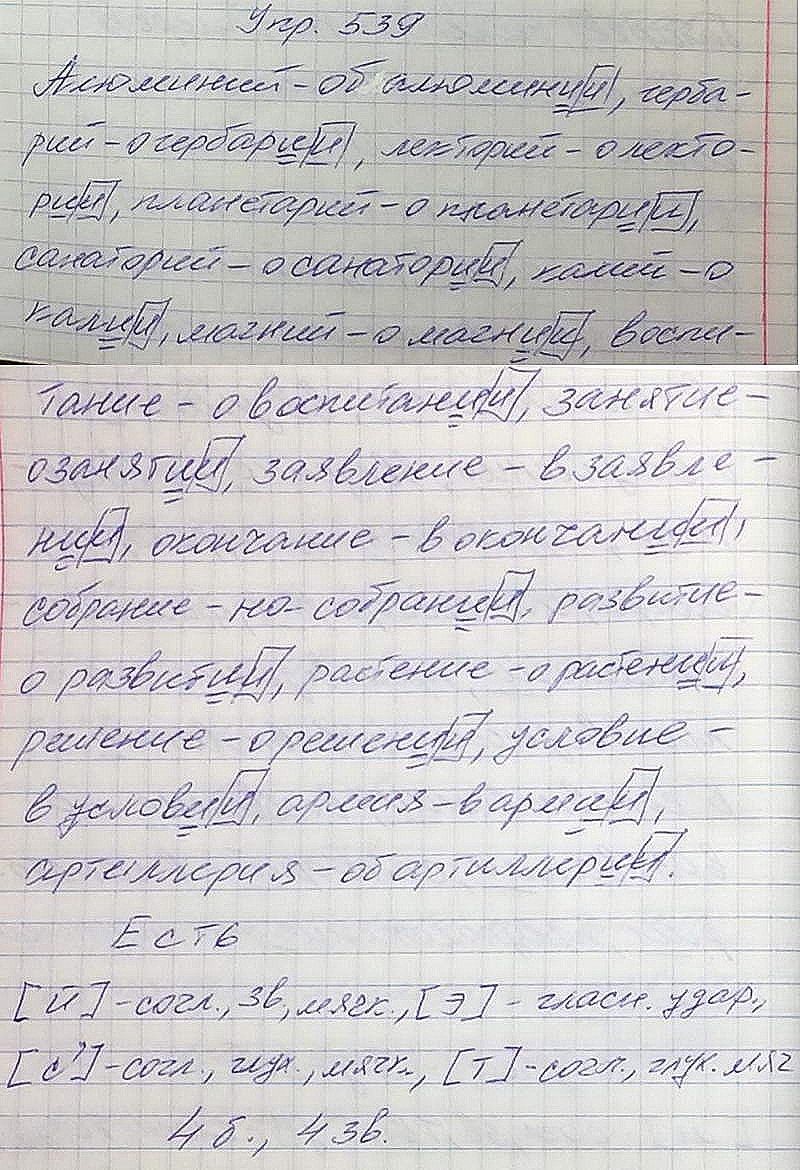 Упр. 539
Алюминий - об алюминии, герба-
рий - о гербарии, лекторий - о лекто-
рии, планетарий - о планетарии,
санаторий - о санатории, калий - о
калии, магний - о магнии, воспи-
тание - о воспитании, занятие -
о занятии, заявление - в заявле-
нии, окончание - в окончании,
собрание - на собрании, развитие -
о развитии, растение - о растении,
решение - о решении, условие -
в условии, армия - в армии,
артиллерия - об артиллерии.
Есть
[й] - согл., зв, мягк., [э] - гласн. удар.,
[с'] - согл., глух., мягк., [т] - согл., глух. мяг
4 б., 4 зв.